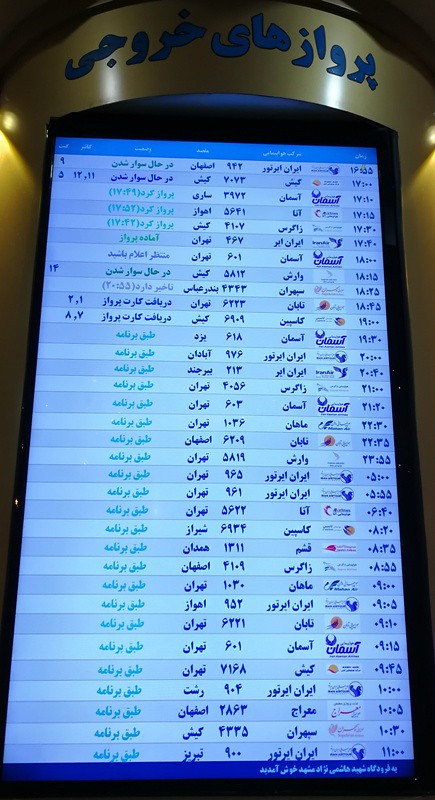 پروازهای خروجی
زمان شرکت هواپیمایی مقصد وضعیت کانتر گیت
۱۶:۵۵ ایران ایرتور ۹۴۲ اصفهان در حال سوار شدن ۹
۱۷:۰۰ کیش ۷۰۷۳ کیش در حال سوار شدن ۱۲,۱۱ ۵
۱۷:۱۰ آسمان ۳۹۷۲ ساری پرواز کرد(۱۷:۴۹)
۱۷:۱۵ آتا ۵۶۴۱ اهواز پرواز کرد(۱۷:۵۲)
۱۷:۳۰ زاگرس ۴۱۰۷ کیش پرواز کرد(۱۷:۴۲)
۱۷:۴۰ ایران ایر ۴۶۷ تهران آماده پرواز
۱۸:۰۰ آسمان ۶۰۱ تهران منتظر اعلام باشید
۱۸:۱۵ وارش ۵۸۱۲ کیش در حال سوار شدن ۱۴
۱۸:۲۵ سپهران ۴۳۴۳ بندرعباس تاخیر دارد(۲۰:۵۵)
۱۸:۴۵ تابان ۶۲۲۳ تهران دریافت کارت پرواز ۲,۱
۱۹:۰۰ کاسپین ۶۹۰۹ کیش دریافت کارت پرواز ۸,۷
۱۹:۳۰ آسمان ۶۱۸ یزد طبق برنامه
۲۰:۰۰ ایران ایرتور ۹۷۶ آبادان طبق برنامه
۲۰:۴۰ ایران ایر ۲۱۳ بیرجند طبق برنامه
۲۱:۰۰ زاگرس ۴۰۵۶ تهران طبق برنامه
۲۱:۲۰ آسمان ۶۰۳ تهران طبق برنامه
۲۲:۳۰ ماهان ۱۰۳۶ تهران طبق برنامه
۲۲:۳۵ تابان ۶۲۰۹ اصفهان طبق برنامه
۲۳:۵۵ وارش ۵۸۱۹ تهران طبق برنامه
۰۵:۰۰ ایران ایرتور ۹۶۵ تهران طبق برنامه
۰۵:۵۵ ایران ایرتور ۹۶۱ تهران طبق برنامه
۰۶:۴۰ آتا ۵۶۲۲ تهران طبق برنامه
۰۸:۲۰ کاسپین ۶۹۳۴ شیراز طبق برنامه
۰۸:۳۵ قشم ۱۳۱۱ همدان طبق برنامه
۰۸:۵۵ زاگرس ۴۱۰۹ اصفهان طبق برنامه
۰۹:۰۰ ماهان ۱۰۳۰ تهران طبق برنامه
۰۹:۰۵ ایران ایرتور ۹۵۲ اهواز طبق برنامه
۰۹:۱۰ تابان ۶۲۲۱ تهران طبق برنامه
۰۹:۱۵ آسمان ۶۰۱ تهران طبق برنامه
۰۹:۴۵ کیش ۷۱۶۸ تهران طبق برنامه
۱۰:۰۰ ایران ایرتور ۹۰۴ رشت طبق برنامه
۱۰:۰۵ معراج ۲۸۶۳ اصفهان طبق برنامه
۱۰:۳۰ سپهران ۴۳۳۵ کیش طبق برنامه
۱۱:۰۰ ایران ایرتور ۹۰۰ تبریز طبق برنامه
به فرودگاه شهید هاشمی نژاد مشهد خوش آمدید